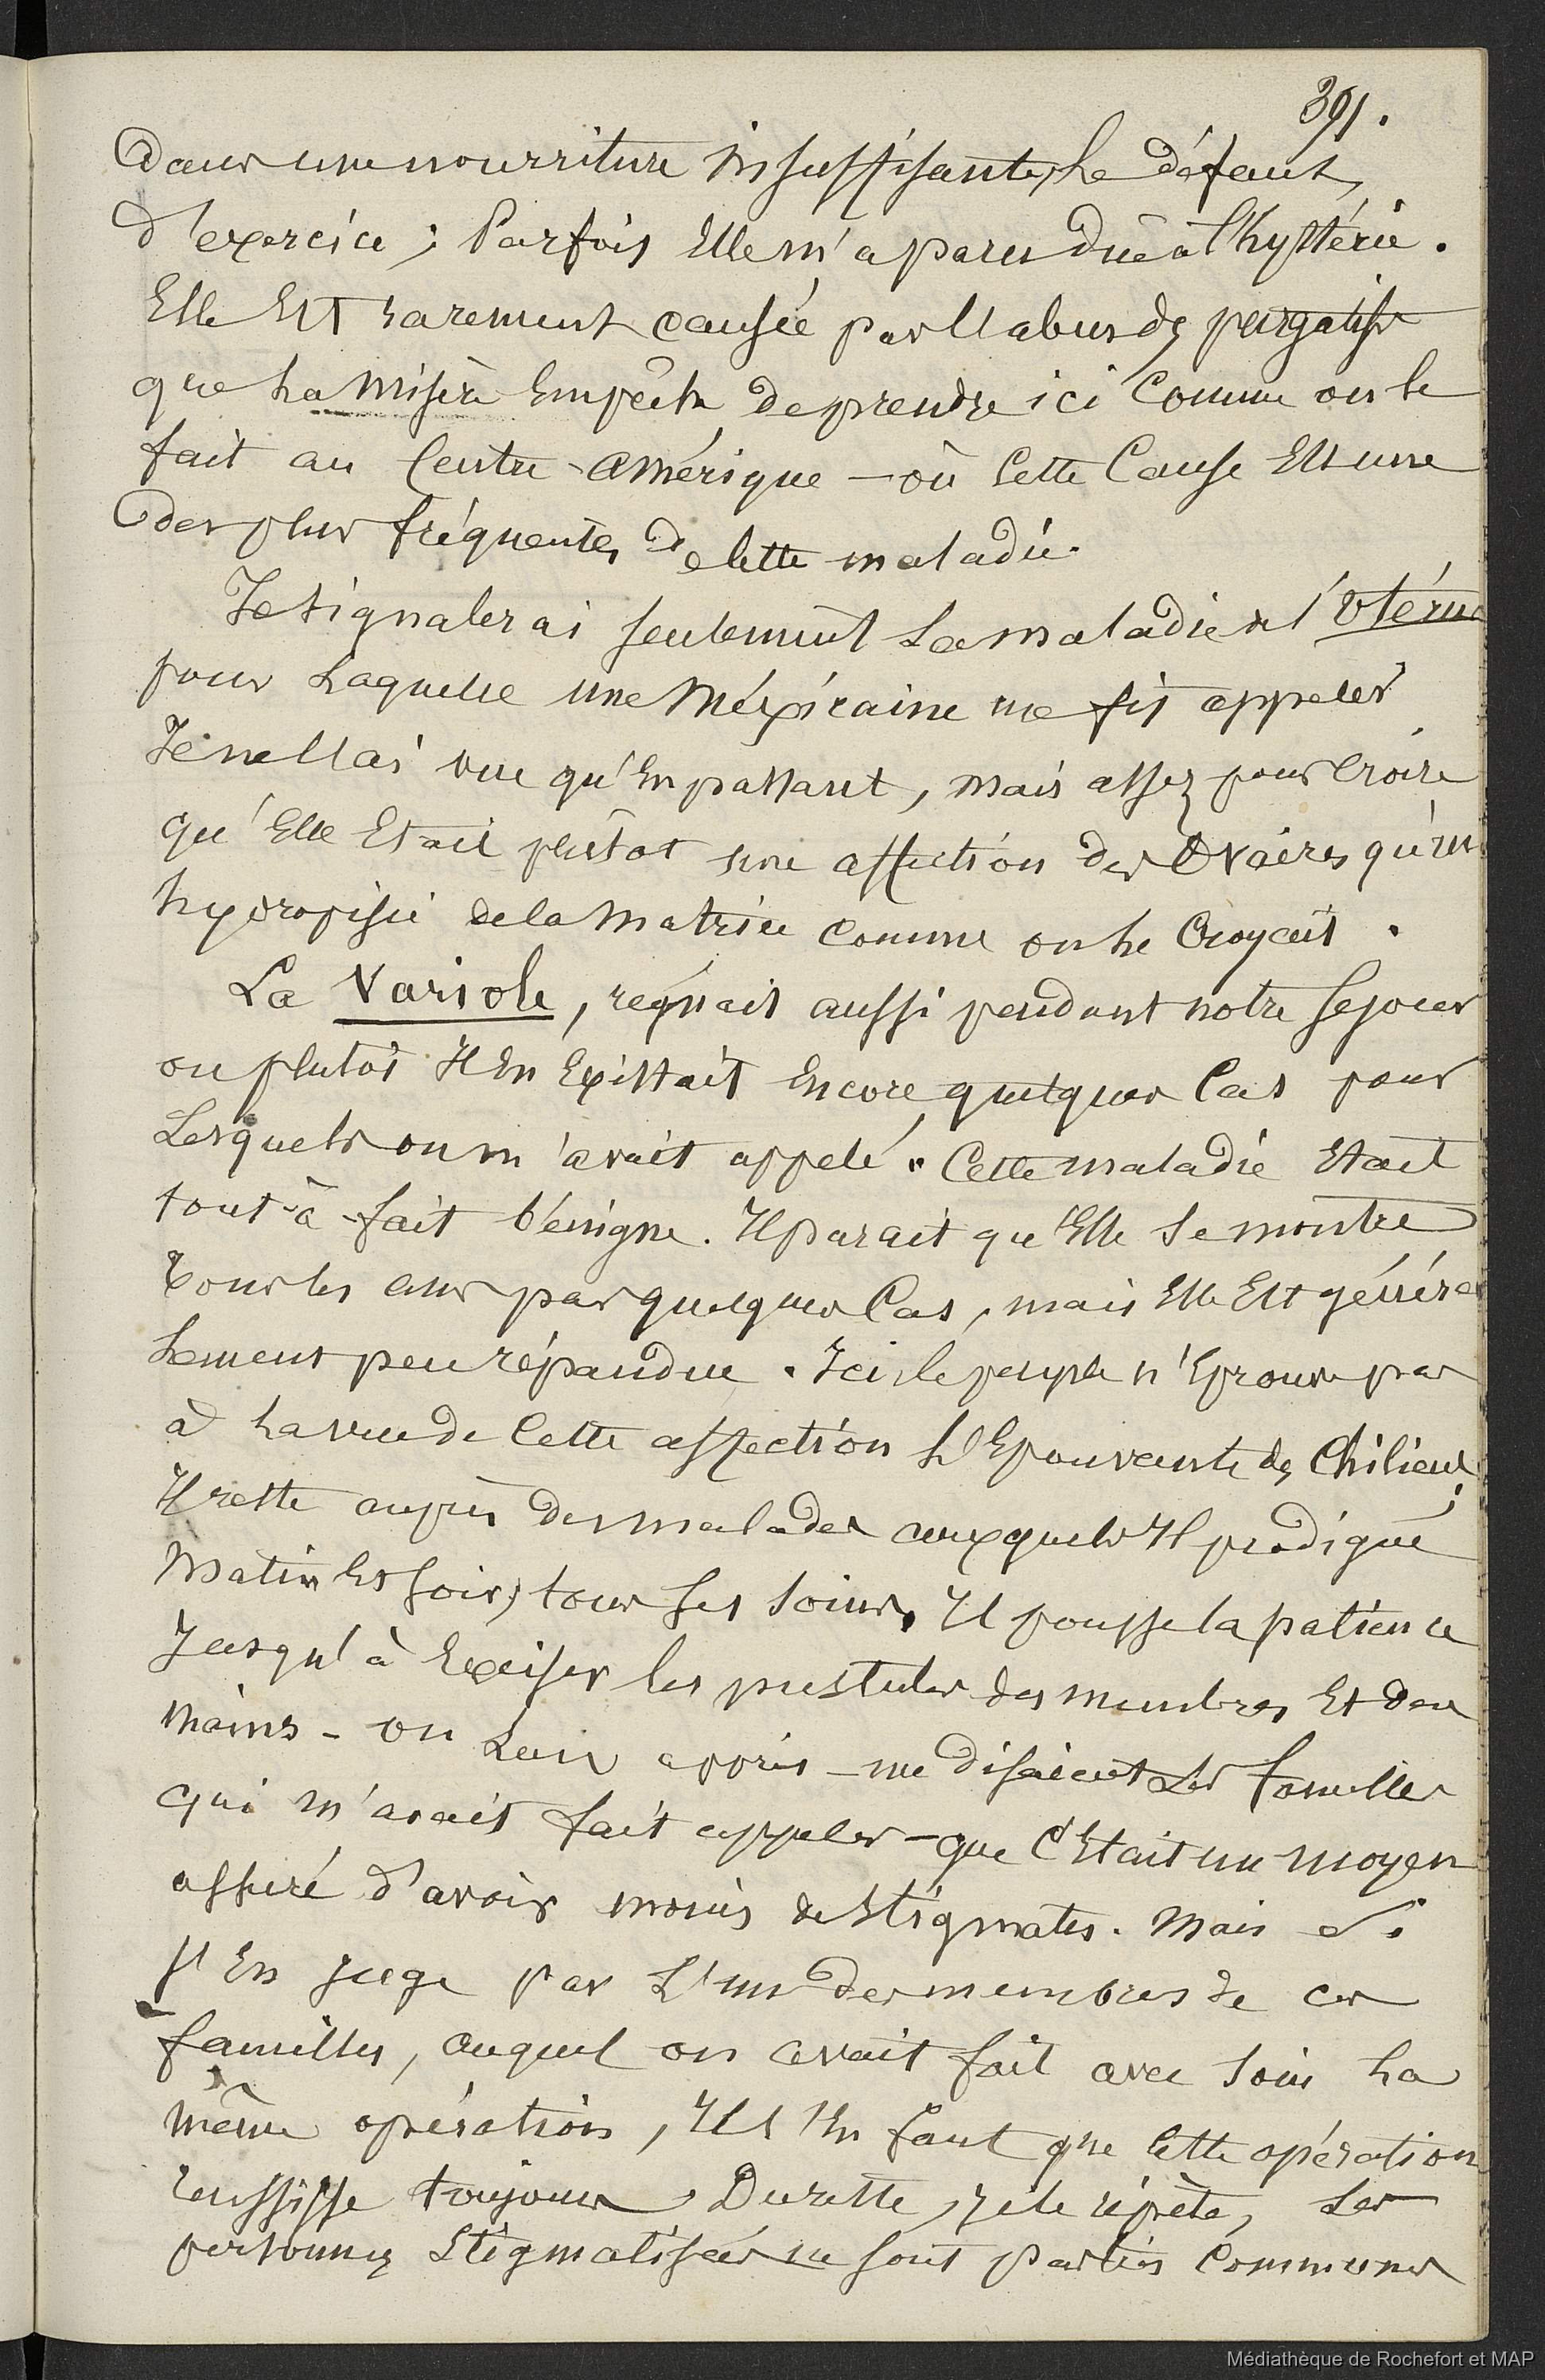 391.
dans une nourriture insuffisante, le défaut
d'exercice ; Parfois Elle m'a paru dûe à l'hystérie.
Elle Est rarement causée par l'abus des purgatifs
que la misère Empêche de prendre ici Comme on le
fait au Centre-Amérique - où Cette Cause Est une
des plus fréquentes de cette maladie.
Je signalerai seulement la maladie de l'Utérus
pour laquelle une Méxicaine me fit appeler
Je ne l'ai vue qu'En passant, mais assez pour Croire
qu'Elle Etait plûtot une affection des Ovaires qu'une
hydropisie de la Matrice comme on le Croyait.
La Variole, régnait aussi pendant notre séjour
ou plutôt Il En Existait Encore quelques Cas pour
Lesquels on m'avait appelé. Cette maladie Etait
tout-à-fait bénigne. Il parait qu'Elle se montre
tous les ans par quelques Cas, mais Elle Est généra
lement peu répandue. Ici le peuple n'Eprouve pas
à la vue de Cette affection l'Epouvante des Chiliens ;
Il reste auprès des malades auxquels Il prodigue
Matin Et soir, tous ses soins. Il pousse la patience
Jusqu'à Exciser les pustules des membres Et des
mains - on leur a appris - me disaient Les familles
qui m'avait fait appeler - que C'Etait un moyen
assuré d'avoir moins de Stigmates. Mais si
J'En juge par L'un des membres de ces
familles, auquel on avait fait avec soin la
même opération, Il s'En faut que Cette opération
réussisse toujours. Du reste, je le répète, Les
personnes Stigmatisées ne sont pas très Communes
Médiathèque de Rochefort et MAP